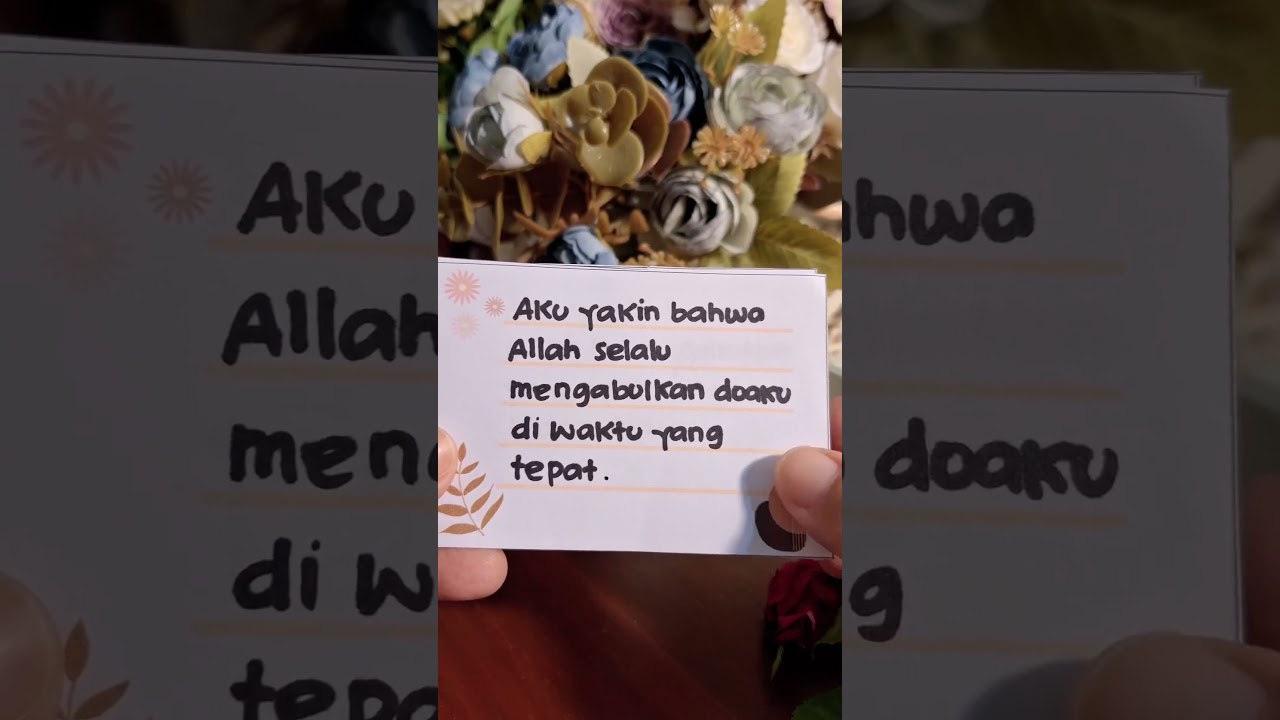 Aku yakin bahwa
Allah selalu
mengabulkan doaku
di waktu yang
tepat.